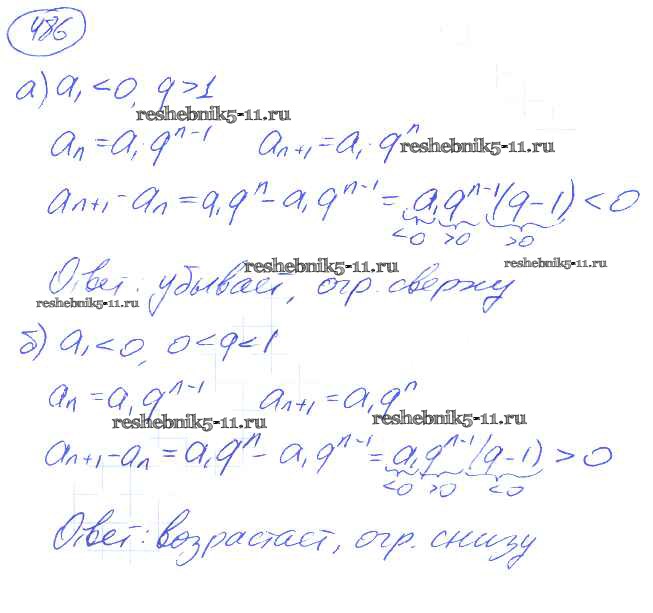 486
а) a₁ < 0, q > 1
reshebnik5-11.ru
aₙ = a₁qⁿ⁻¹ aₙ₊₁ = a₁·qⁿ reshebnik5-11.ru
aₙ₊₁ - aₙ = a₁qⁿ - a₁qⁿ⁻¹ = a₁qⁿ⁻¹(q-1) < 0
<0 >0 >0
reshebnik5-11.ru reshebnik5-11.ru
Ответ: убывает, огр. сверху
reshebnik5-11.ru
б) a₁ < 0, 0 < q < 1
aₙ = a₁qⁿ⁻¹ aₙ₊₁ = a₁qⁿ
reshebnik5-11.ru reshebnik5-11.ru
aₙ₊₁ - aₙ = a₁qⁿ - a₁qⁿ⁻¹ = a₁qⁿ⁻¹(q-1) > 0
<0 >0 <0
Ответ: возрастает, огр. снизу